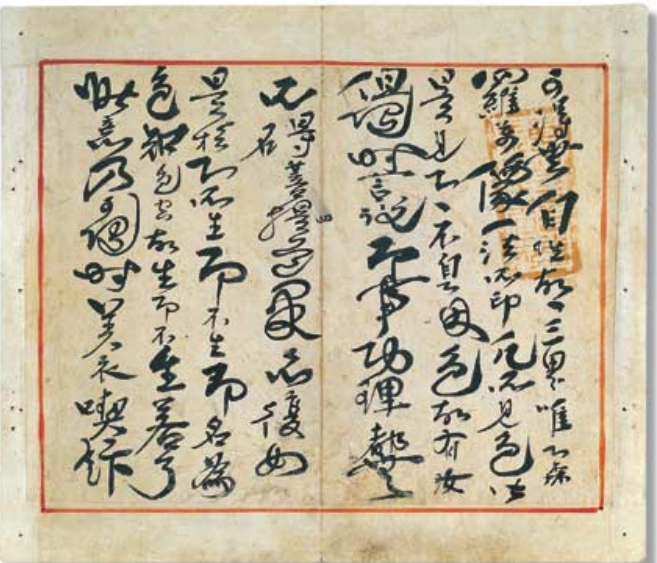 可得無自性故三界唯心森
羅萬像一法所印凡所見色皆
是見心〻不自心因色故有汝
隨時言說即事即理都無
所礙菩提道果亦復如
是於心所生即不生即名為
色知色空故生即不生若了
此意乃可隨時著衣喫飯